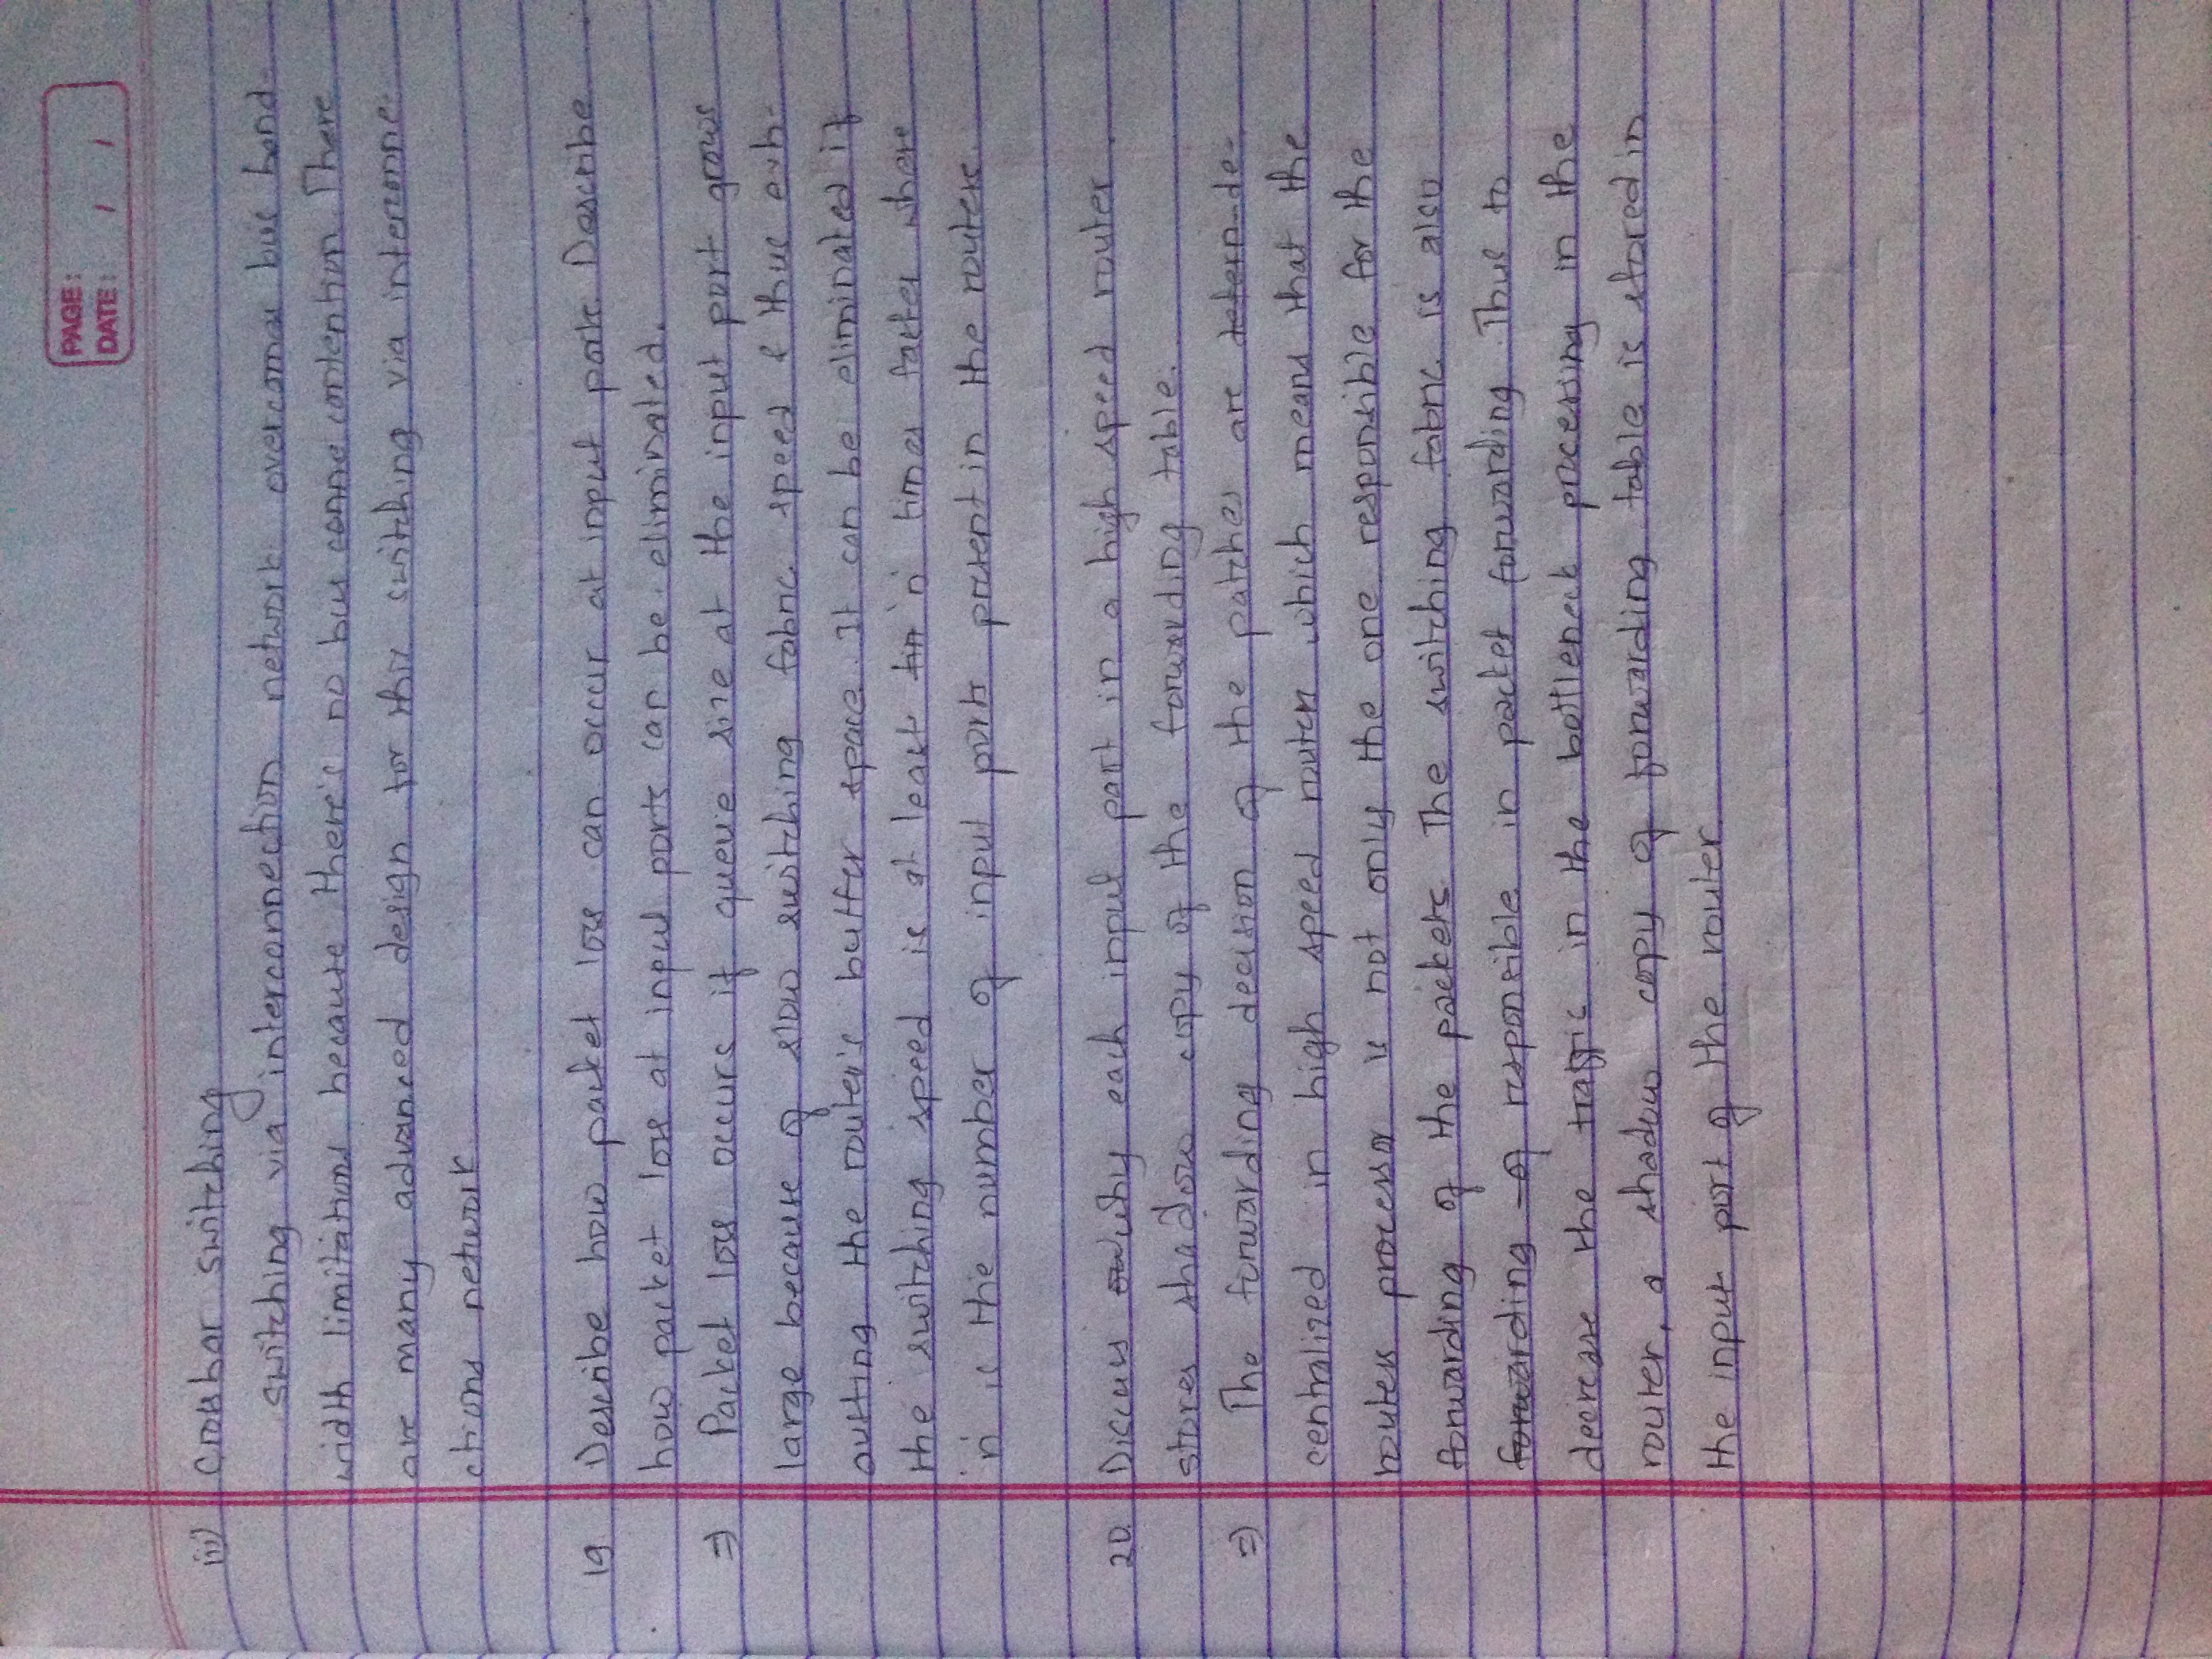 PAGE:
DATE: / /
iii) Crossbar switching
switching via interconnection network overcomes bus band-
width limitations because there's no bus conne contention. There
are many advanced design for this switching via interconne-
ctions network.
19. Describe how packet loss can occur at input ports. Describe
how packet loss at input ports can be eliminated.
⇒ Packet loss occurs if queue size at the input port grows
large because of slow switching fabric speed & thus exh-
austing the router's buffer space. It can be eliminated if
the switching speed is at least tin 'n' times faster where
'n' is the number of input ports present in the routers.
20. Discuss why each input port in a high speed router
stores shadow copy of the forwarding table.
⇒ The forwarding decision of the patches are determ de-
centralized in high speed routers which means that the
routers processor is not only the one responsible for the
forwarding of the packets. The switching fabric is also
forwarding of responsible in packet forwarding. Thus to
decrease the traffic in the bottleneck processing in the
router, a shadow copy of forwarding table is stored in
the input port of the router.